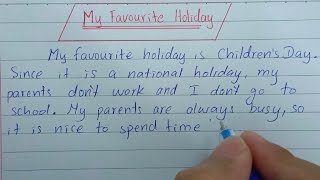 My Favourite Holiday
My favourite holiday is Children's Day.
Since it is a national holiday, my
parents don't work and I don't go to
school. My parents are always busy, so
it is nice to spend time